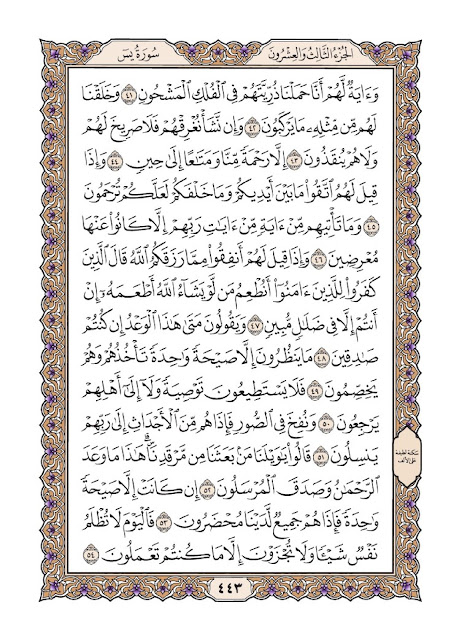 الجُزءُ الثَّالِثُ وَالعِشرُونَ
سُورَةُ يسٓ
وَءَايَةٌ لَّهُمْ أَنَّا حَمَلْنَا ذُرِّيَّتَهُمْ فِى ٱلْفُلْكِ ٱلْمَشْحُونِ ٤١ وَخَلَقْنَا
لَهُم مِّن مِّثْلِهِۦ مَا يَرْكَبُونَ ٤٢ وَإِن نَّشَأْ نُغْرِقْهُمْ فَلَا صَرِيخَ لَهُمْ
وَلَا هُمْ يُنقَذُونَ ٤٣ إِلَّا رَحْمَةً مِّنَّا وَمَتَٰعًا إِلَىٰ حِينٍ ٤٤ وَإِذَا
قِيلَ لَهُمُ ٱتَّقُوا۟ مَا بَيْنَ أَيْدِيكُمْ وَمَا خَلْفَكُمْ لَعَلَّكُمْ تُرْحَمُونَ
٤٥ وَمَا تَأْتِيهِم مِّنْ ءَايَةٍ مِّنْ ءَايَٰتِ رَبِّهِمْ إِلَّا كَانُوا۟ عَنْهَا
مُعْرِضِينَ ٤٦ وَإِذَا قِيلَ لَهُمْ أَنفِقُوا۟ مِمَّا رَزَقَكُمُ ٱللَّهُ قَالَ ٱلَّذِينَ
كَفَرُوا۟ لِلَّذِينَ ءَامَنُوٓا۟ أَنُطْعِمُ مَن لَّوْ يَشَآءُ ٱللَّهُ أَطْعَمَهُۥٓ إِنْ
أَنتُمْ إِلَّا فِى ضَلَٰلٍ مُّبِينٍ ٤٧ وَيَقُولُونَ مَتَىٰ هَٰذَا ٱلْوَعْدُ إِن كُنتُمْ
صَٰدِقِينَ ٤٨ مَا يَنظُرُونَ إِلَّا صَيْحَةً وَٰحِدَةً تَأْخُذُهُمْ وَهُمْ
يَخِصِّمُونَ ٤٩ فَلَا يَسْتَطِيعُونَ تَوْصِيَةً وَلَآ إِلَىٰٓ أَهْلِهِمْ
يَرْجِعُونَ ٥٠ وَنُفِخَ فِى ٱلصُّورِ فَإِذَا هُم مِّنَ ٱلْأَجْدَاثِ إِلَىٰ رَبِّهِمْ
يَنسِلُونَ ٥١ قَالُوا۟ يَٰوَيْلَنَا مَنۢ بَعَثَنَا مِن مَّرْقَدِنَا ۜ هَٰذَا مَا وَعَدَ
ٱلرَّحْمَٰنُ وَصَدَقَ ٱلْمُرْسَلُونَ ٥٢ إِن كَانَتْ إِلَّا صَيْحَةً
وَٰحِدَةً فَإِذَا هُمْ جَمِيعٌ لَّدَيْنَا مُحْضَرُونَ ٥٣ فَٱلْيَوْمَ لَا تُظْلَمُ
نَفْسٌ شَيْـًٔا وَلَا تُجْزَوْنَ إِلَّا مَا كُنتُمْ تَعْمَلُونَ ٥٤
سكتة لطيفة
على الألف
٤٤٣